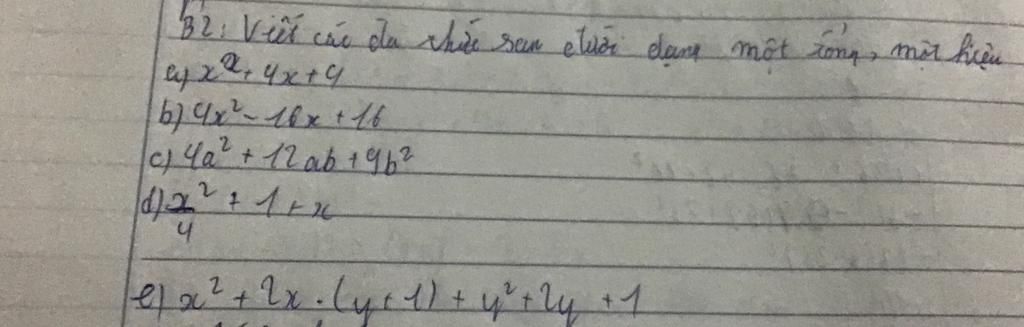 B2: Viết các đa thức sau dưới dạng một tổng, một hiệu
a) x² + 4x + 4
b) 4x² - 16x + 16
c) 4a² + 12ab + 9b²
d) x²/4 + 1 + x
e) x² + 2x . (y + 1) + y² + 2y + 1